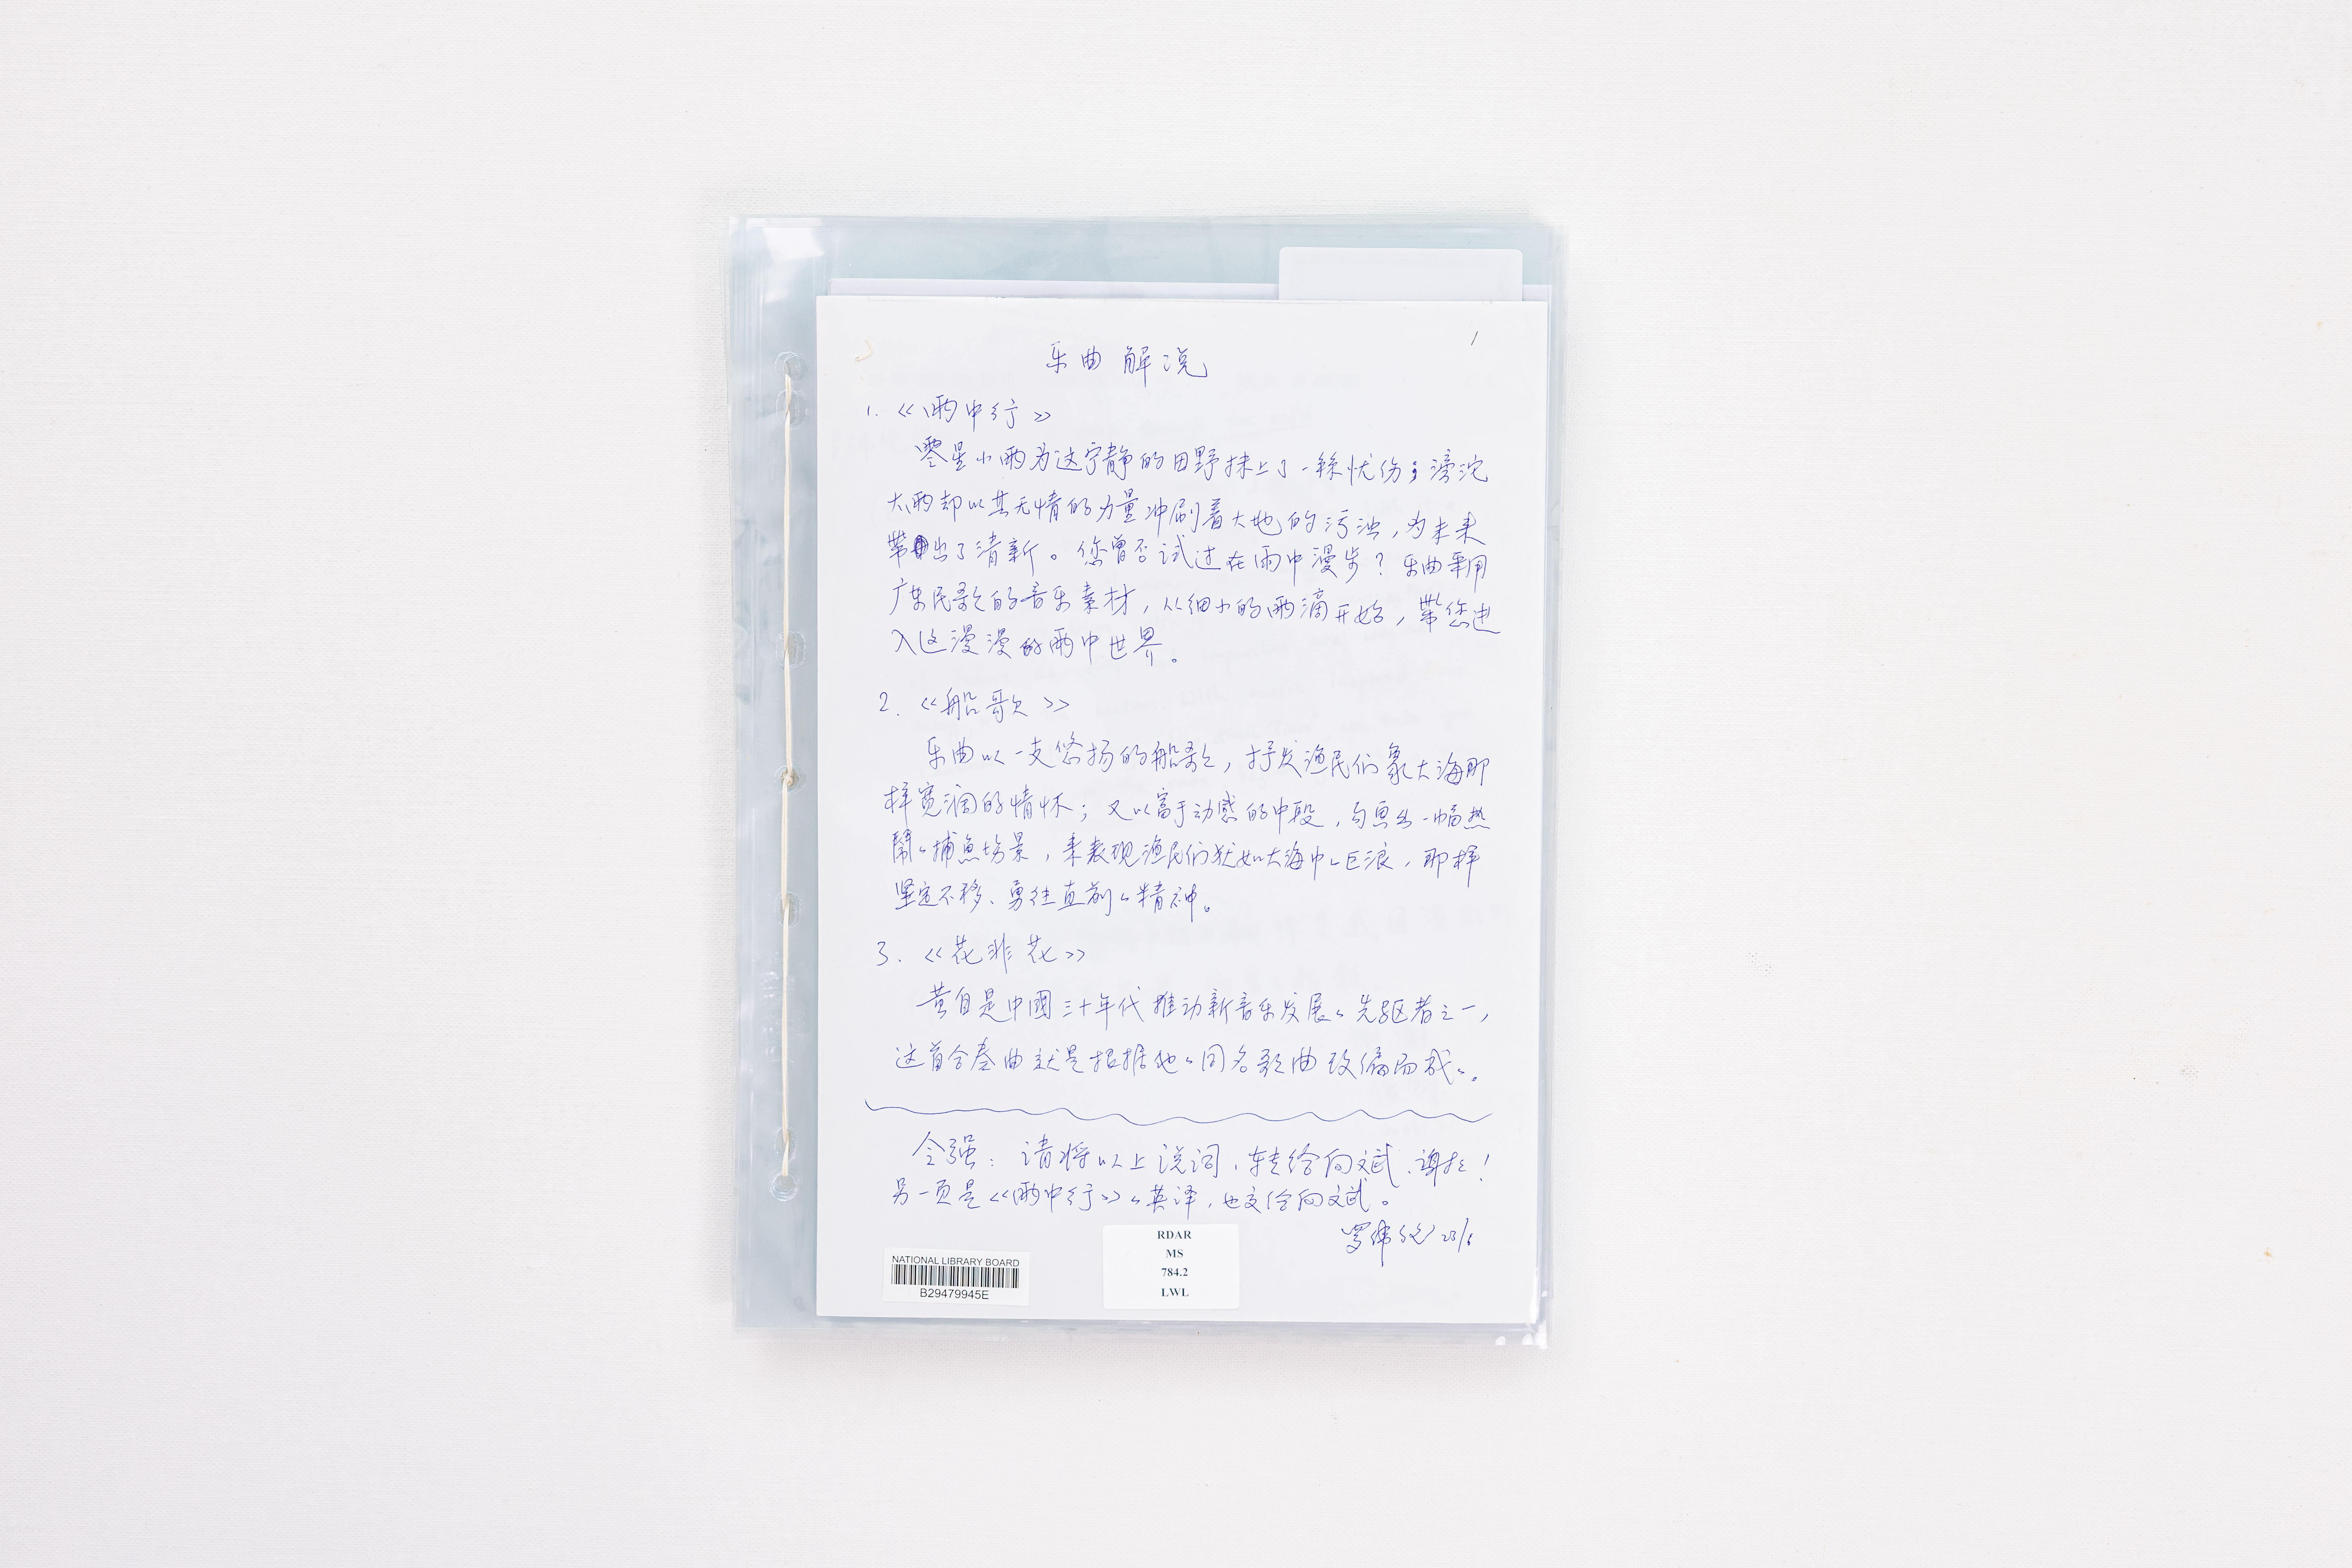 1
乐曲解说
1. 《雨中行》
零星小雨为这宁静的田野抹上了一絲忧伤；滂沱
大雨却以其无情的力量冲刷着大地的污浊，为未来
带出了清新。您曾否试过在雨中漫步？乐曲采用
广东民歌的音乐素材，从细小的雨滴开始，带您进
入这漫漫的雨中世界。
2. 《船歌》
乐曲以一支悠扬的船歌，抒发渔民们象大海那
样宽阔的情怀；又以富于动感的中段，勾画出一幅热
鬧的捕魚场景，来表现渔民们犹如大海中的巨浪，那样
坚定不移、勇往直前的精神。
3. 《花非花》
黄自是中國三十年代推动新音乐发展的先驱者之一，
这首合奏曲就是根据他的同名歌曲改编而成的。
令强：请将以上说词，转给向文武，谢谢！
另一页是《雨中行》的英译，也交给向文武。
罗伟伦 23/6
NATIONAL LIBRARY BOARD
B29479945E
RDAR
MS
784.2
LWL